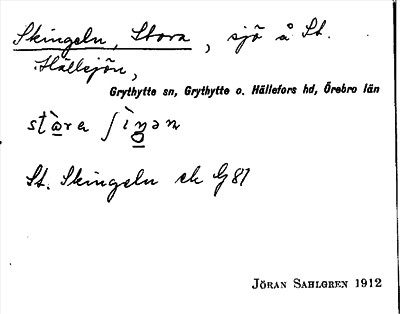 Skingeln, Stora, sjö å St.
Hällsjön,
Grythytte sn, Grythytte o. Hällefors hd, Örebro län
St. Skingeln ek G 87
JÖRAN SAHLGREN 1912